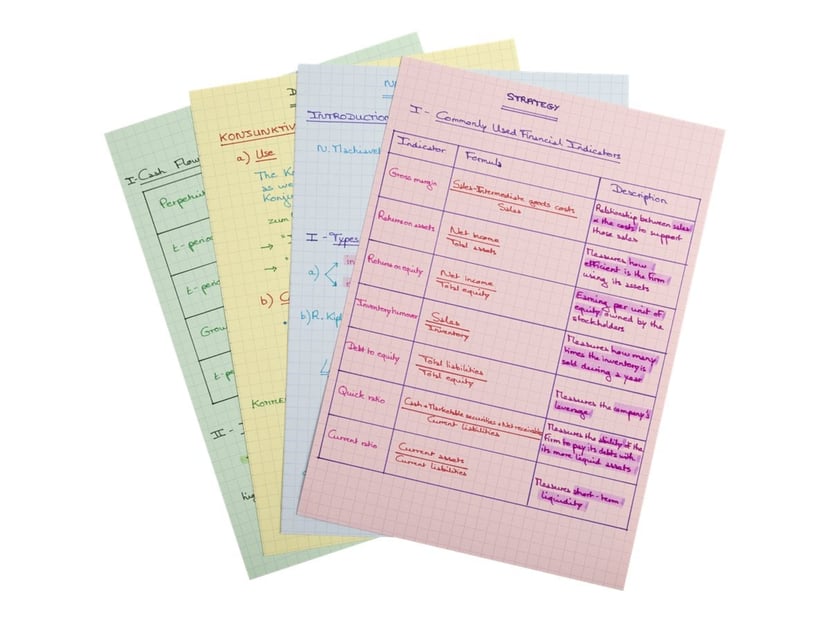 I-Cash Flow
Perpetuit
t-period
t-perio
Grow
t-pe
II-
hig
KONJUNKTIV
a) Use
The Ko
as we
Konju
zum
→
→
b)
KORRE
N
INTRODUCTION
N. Machiavel
I - Types
a)
b) R. Kipl
STRATEGY
I - Commonly Used Financial Indicators
Indicator
Formula
Description
Gross margin
Sales-Intermediate goods costs
Sales
Relationship between sales
& the costs to support
those sales
Return on assets
Net income
Total assets
Measures how
efficient is the firm
using its assets
Return on equity
Net income
Total equity
Earning per unit of
equity owned by the
stockholders
Inventory turnover
Sales
Inventory
Measures how many
times the inventory is
sold during a year
Debt to equity
Total liabilities
Total equity
Measures the company's
leverage
Quick ratio
Cash + Marketable securities + Net receivable
Current liabilities
Measures the ability of the
firm to pay its debts with
its more liquid assets
Current ratio
Current assets
Current liabilities
Measures short-term
liquidity